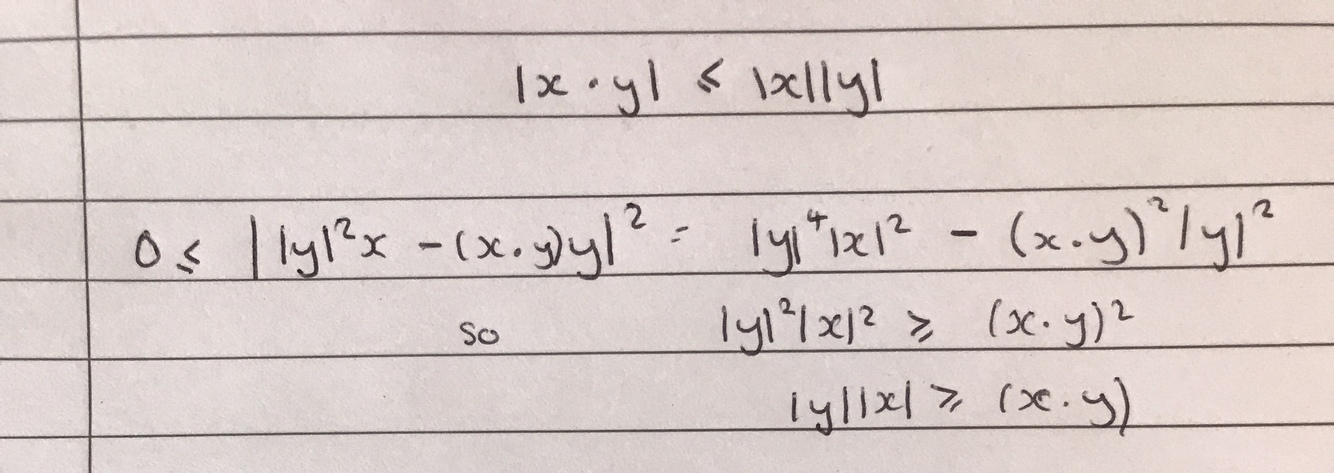 |x · y| ≤ |x||y|
0 ≤ ||y|²x - (x.y)y|² = |y|⁴|x|² - (x.y)²|y|²
so |y|²|x|² ≥ (x.y)²
|y||x| ≥ (x.y)